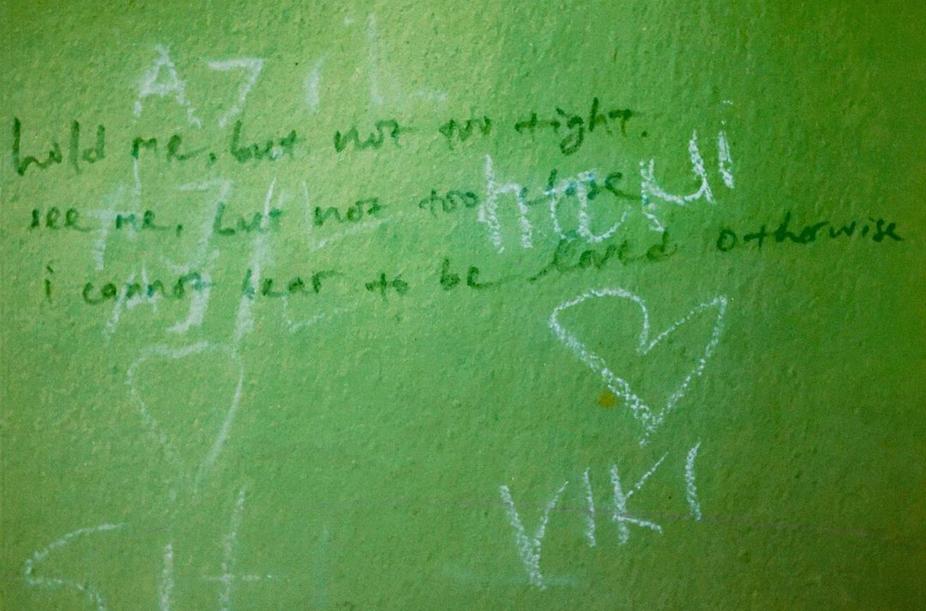 AZIL
hold me, but not too tight.
see me, but not too close
i cannot bear to be loved otherwise
VIKI